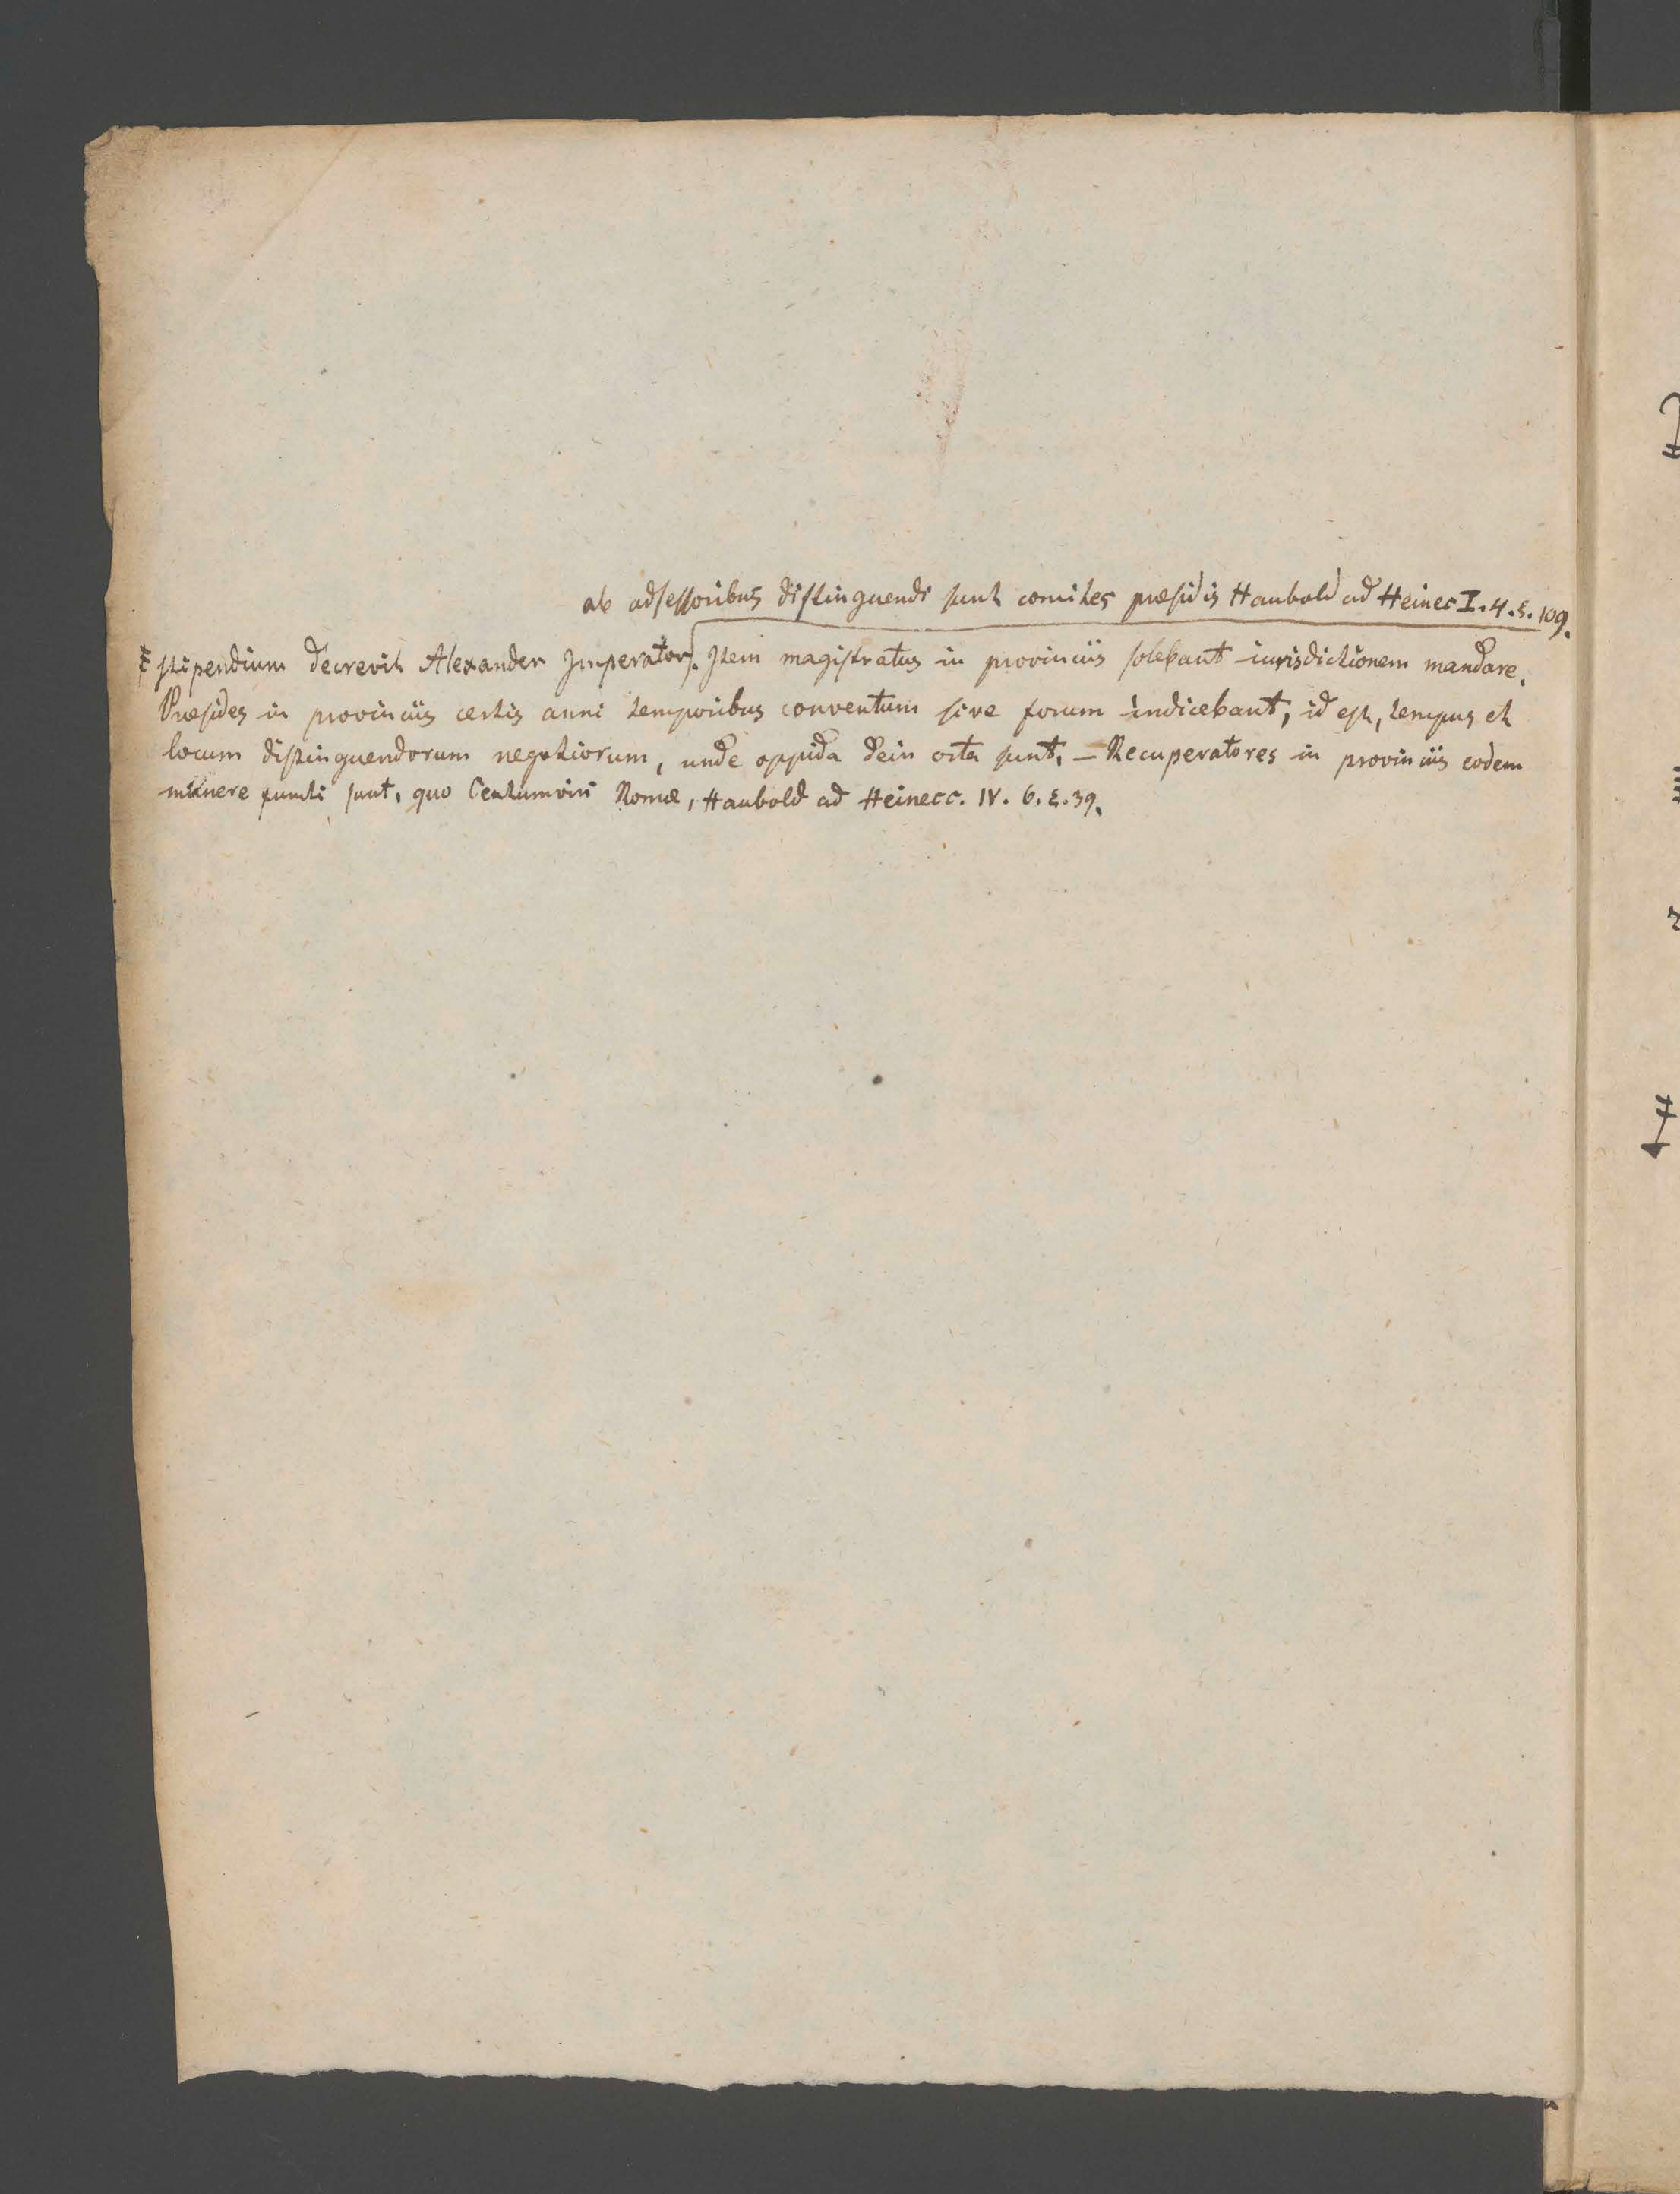 ab adsessoribus distinguendi sunt comites præsidis Haubold ad Heinec I. 4. §. 109.
‡ stipendium decrevit Alexander Imperator. Item magistratus in provinciis solebant iurisdictionem mandare.
Præsides in provinciis certis anni temporibus conventum sive forum indicebant, id est, tempus et
locum distinguendorum negotiorum, unde oppida dein orta sunt. – Recuperatores in provinciis eodem
munere functi sunt, quo Centumviri Romæ, Haubold ad Heinecc. IV. 6. §. 39.